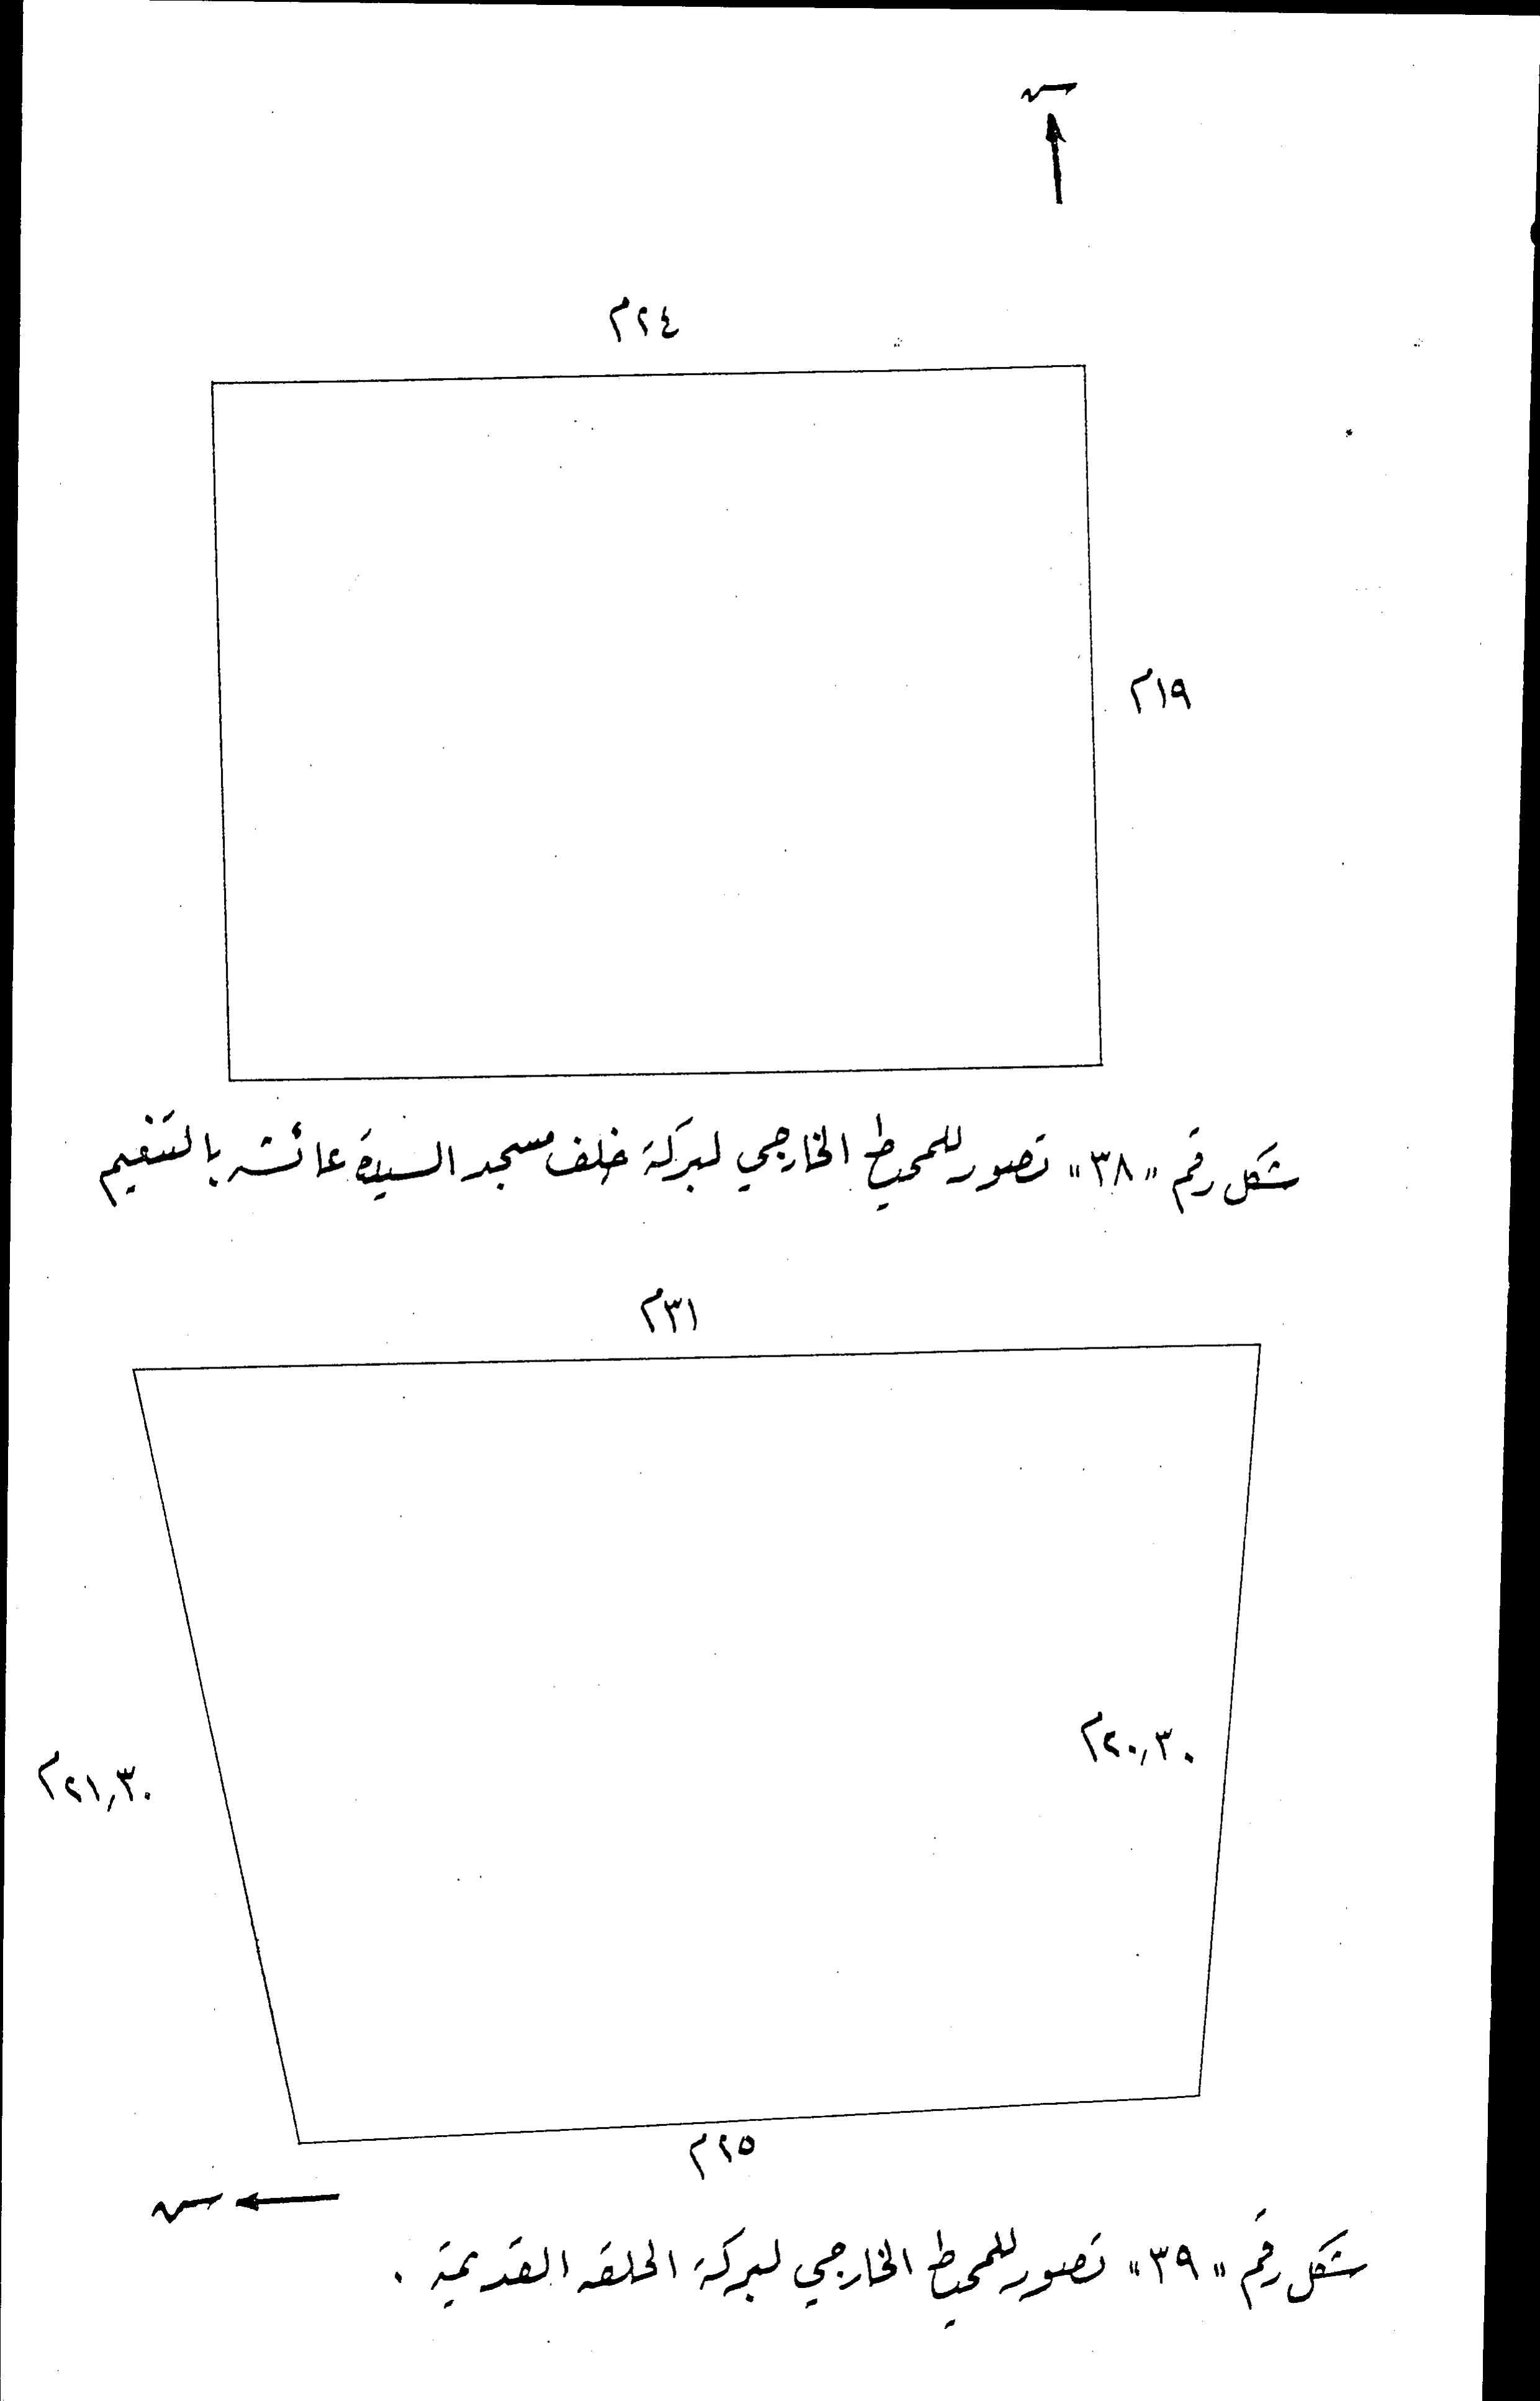 س
٢٤م
١٩م
شكل رقم "٣٨" تصور للمحيط الخارجي لبركة خلف مسجد السيدة عائشة بالتنعيم
٣١م
٢٠,٣٠م
٢١,٣٠م
٢٥م
س
شكل رقم "٣٩" تصور للمحيط الخارجي لبركة الحلقه القديمة .